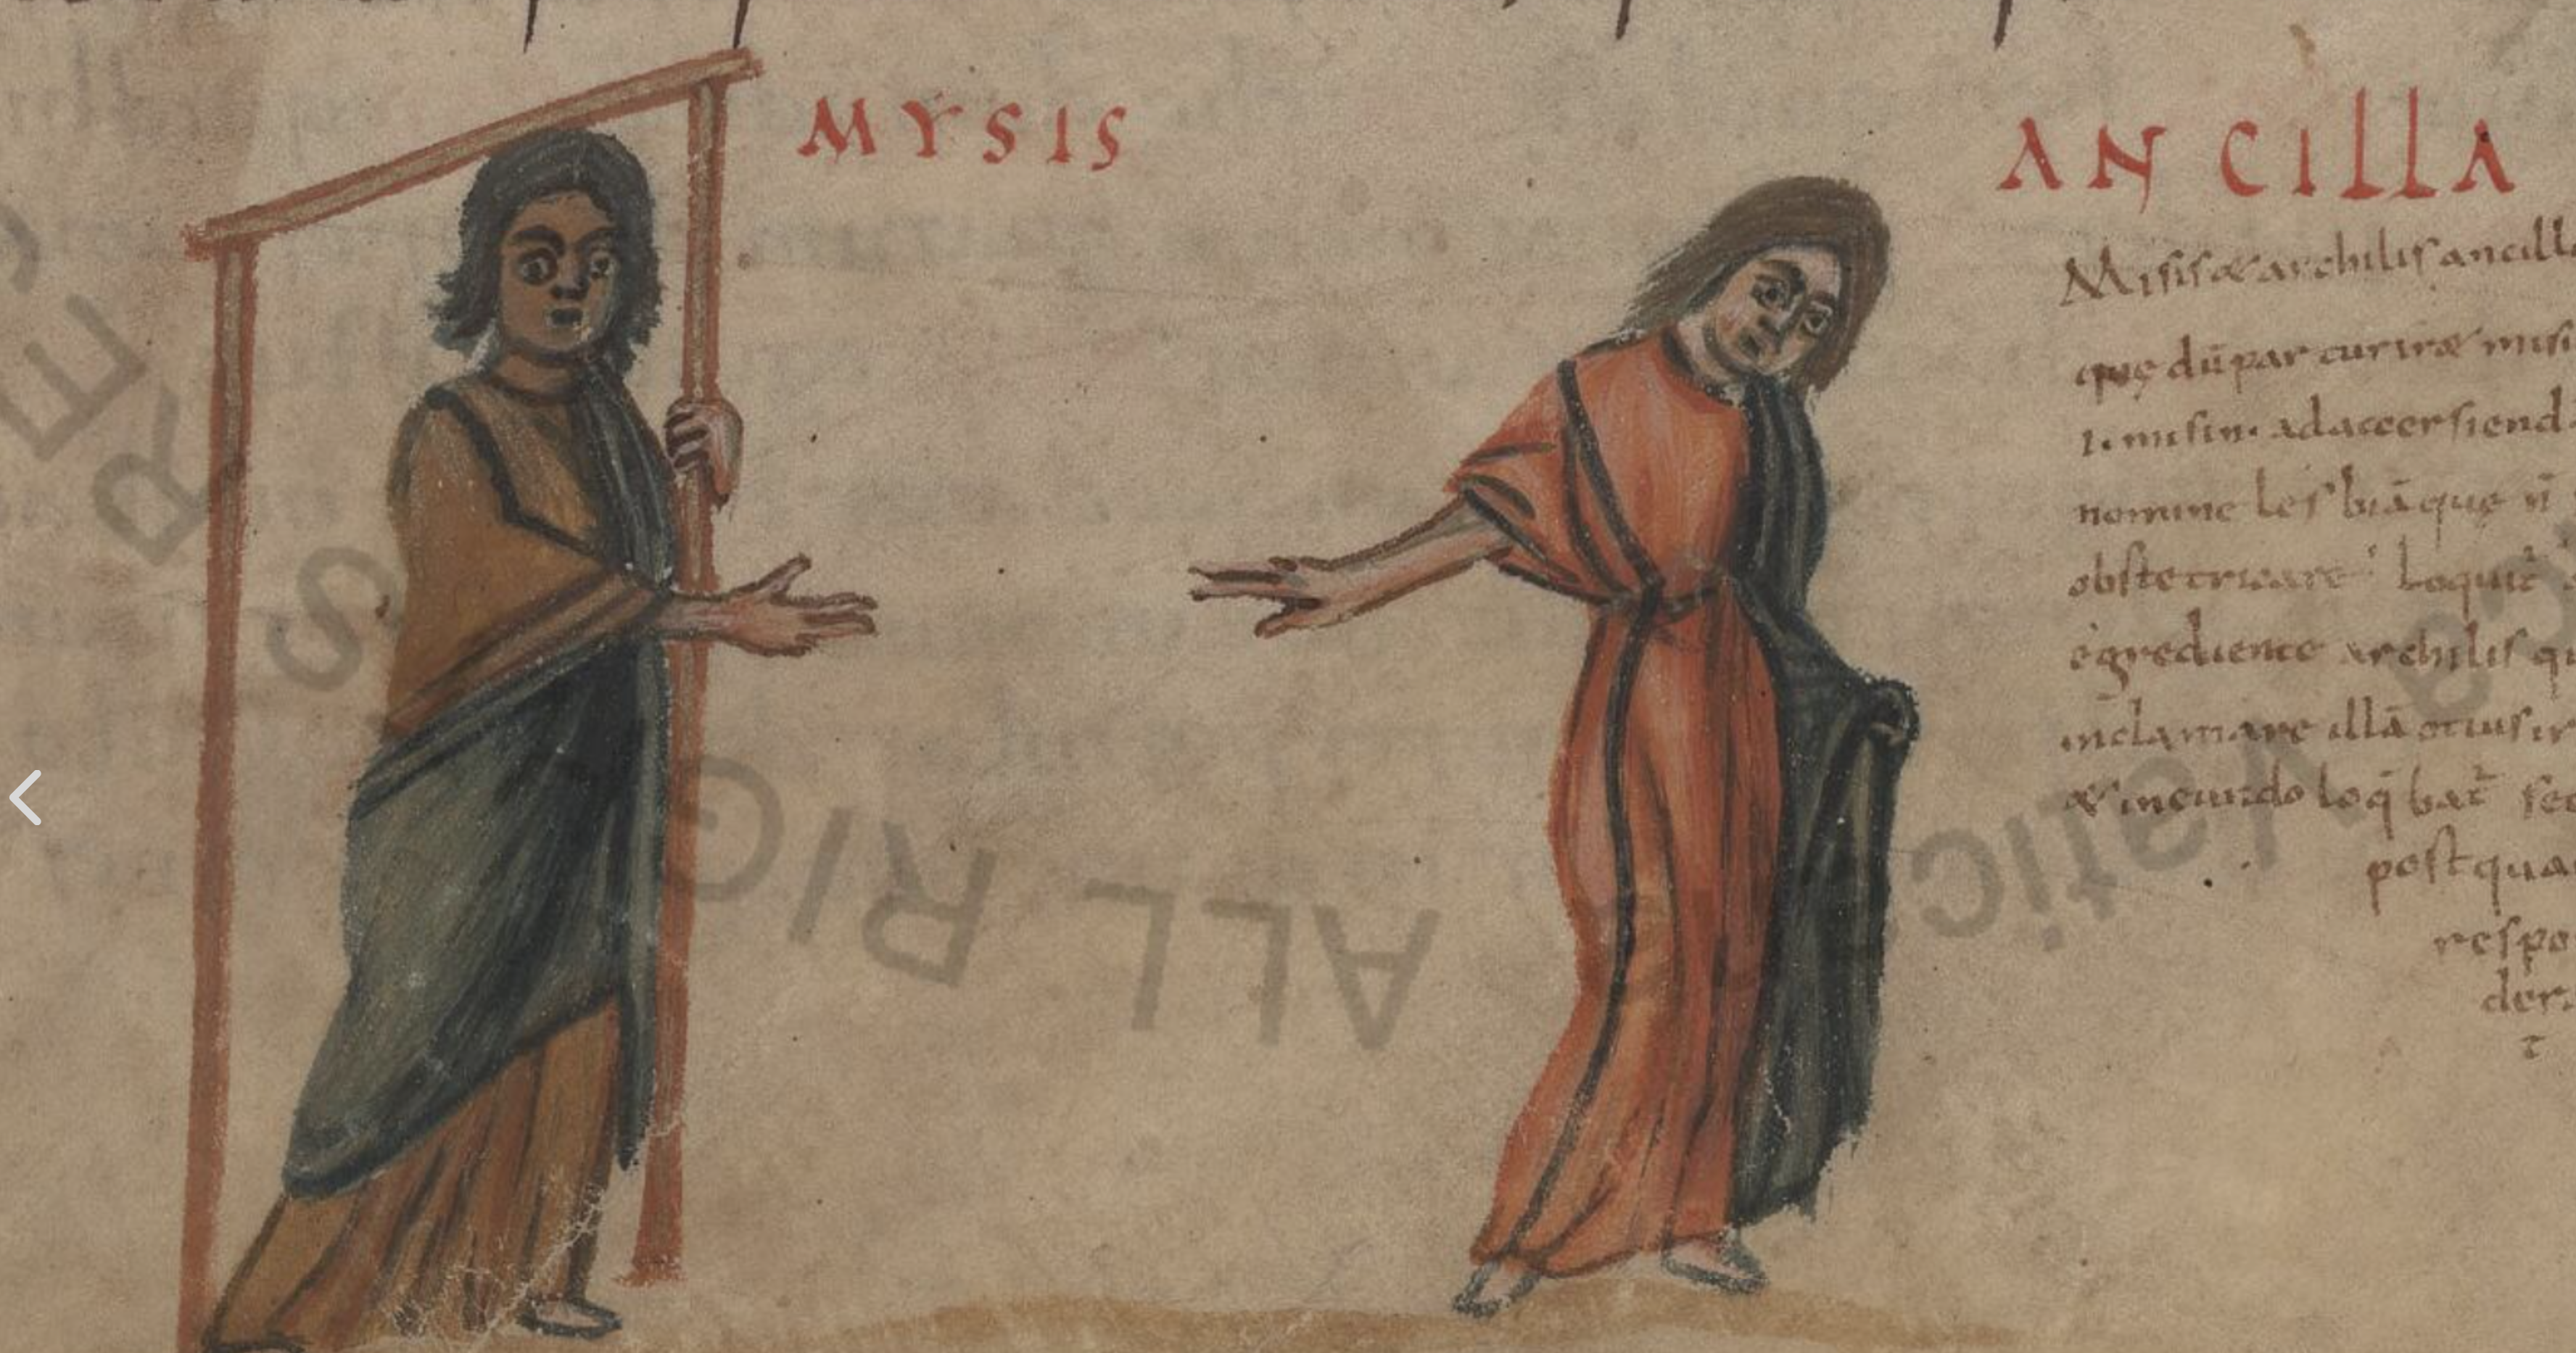 MYSIS
ANCILLA
Misis & archilis ancill
quę dū parturir& misi
misin. ad accersiend
nomine lesbiā quę
obstetricare loquit̄
egrediente archilis qu
inclamare illā
& incundo loq̄bat̄ se
postqua
respo
der
t
ALL RIG